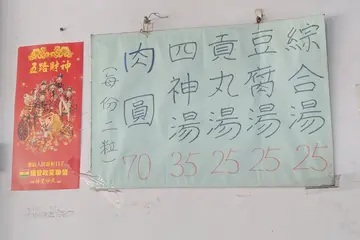 綜合湯 25
豆腐湯 25
貢丸湯 25
四神湯 35
肉圓(每份二粒) 70
五路財神